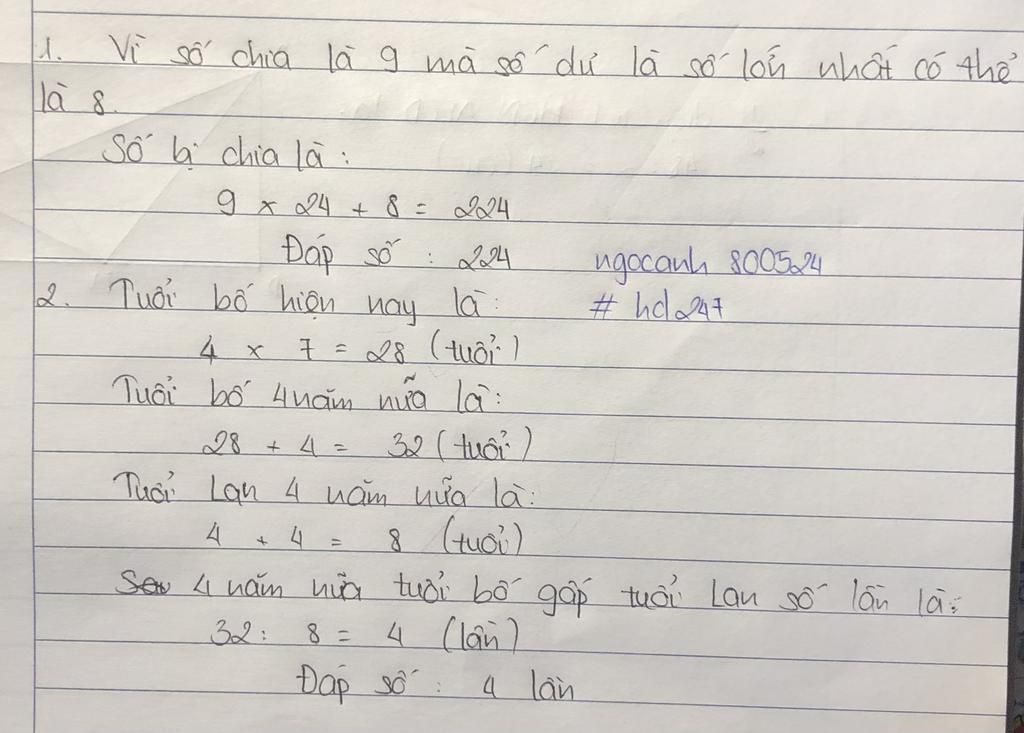 1. Vì số chia là 9 mà số dư là số lớn nhất có thể
là 8.
Số bị chia là:
9 × 24 + 8 = 224
Đáp số : 224 ngocanh 800524
2. Tuổi bố hiện nay là: # hd247
4 × 7 = 28 (tuổi)
Tuổi bố 4 năm nữa là:
28 + 4 = 32 (tuổi)
Tuổi Lan 4 năm nữa là:
4 + 4 = 8 (tuổi)
4 năm nữa tuổi bố gấp tuổi Lan số lần là:
32 : 8 = 4 (lần)
Đáp số : 4 lần